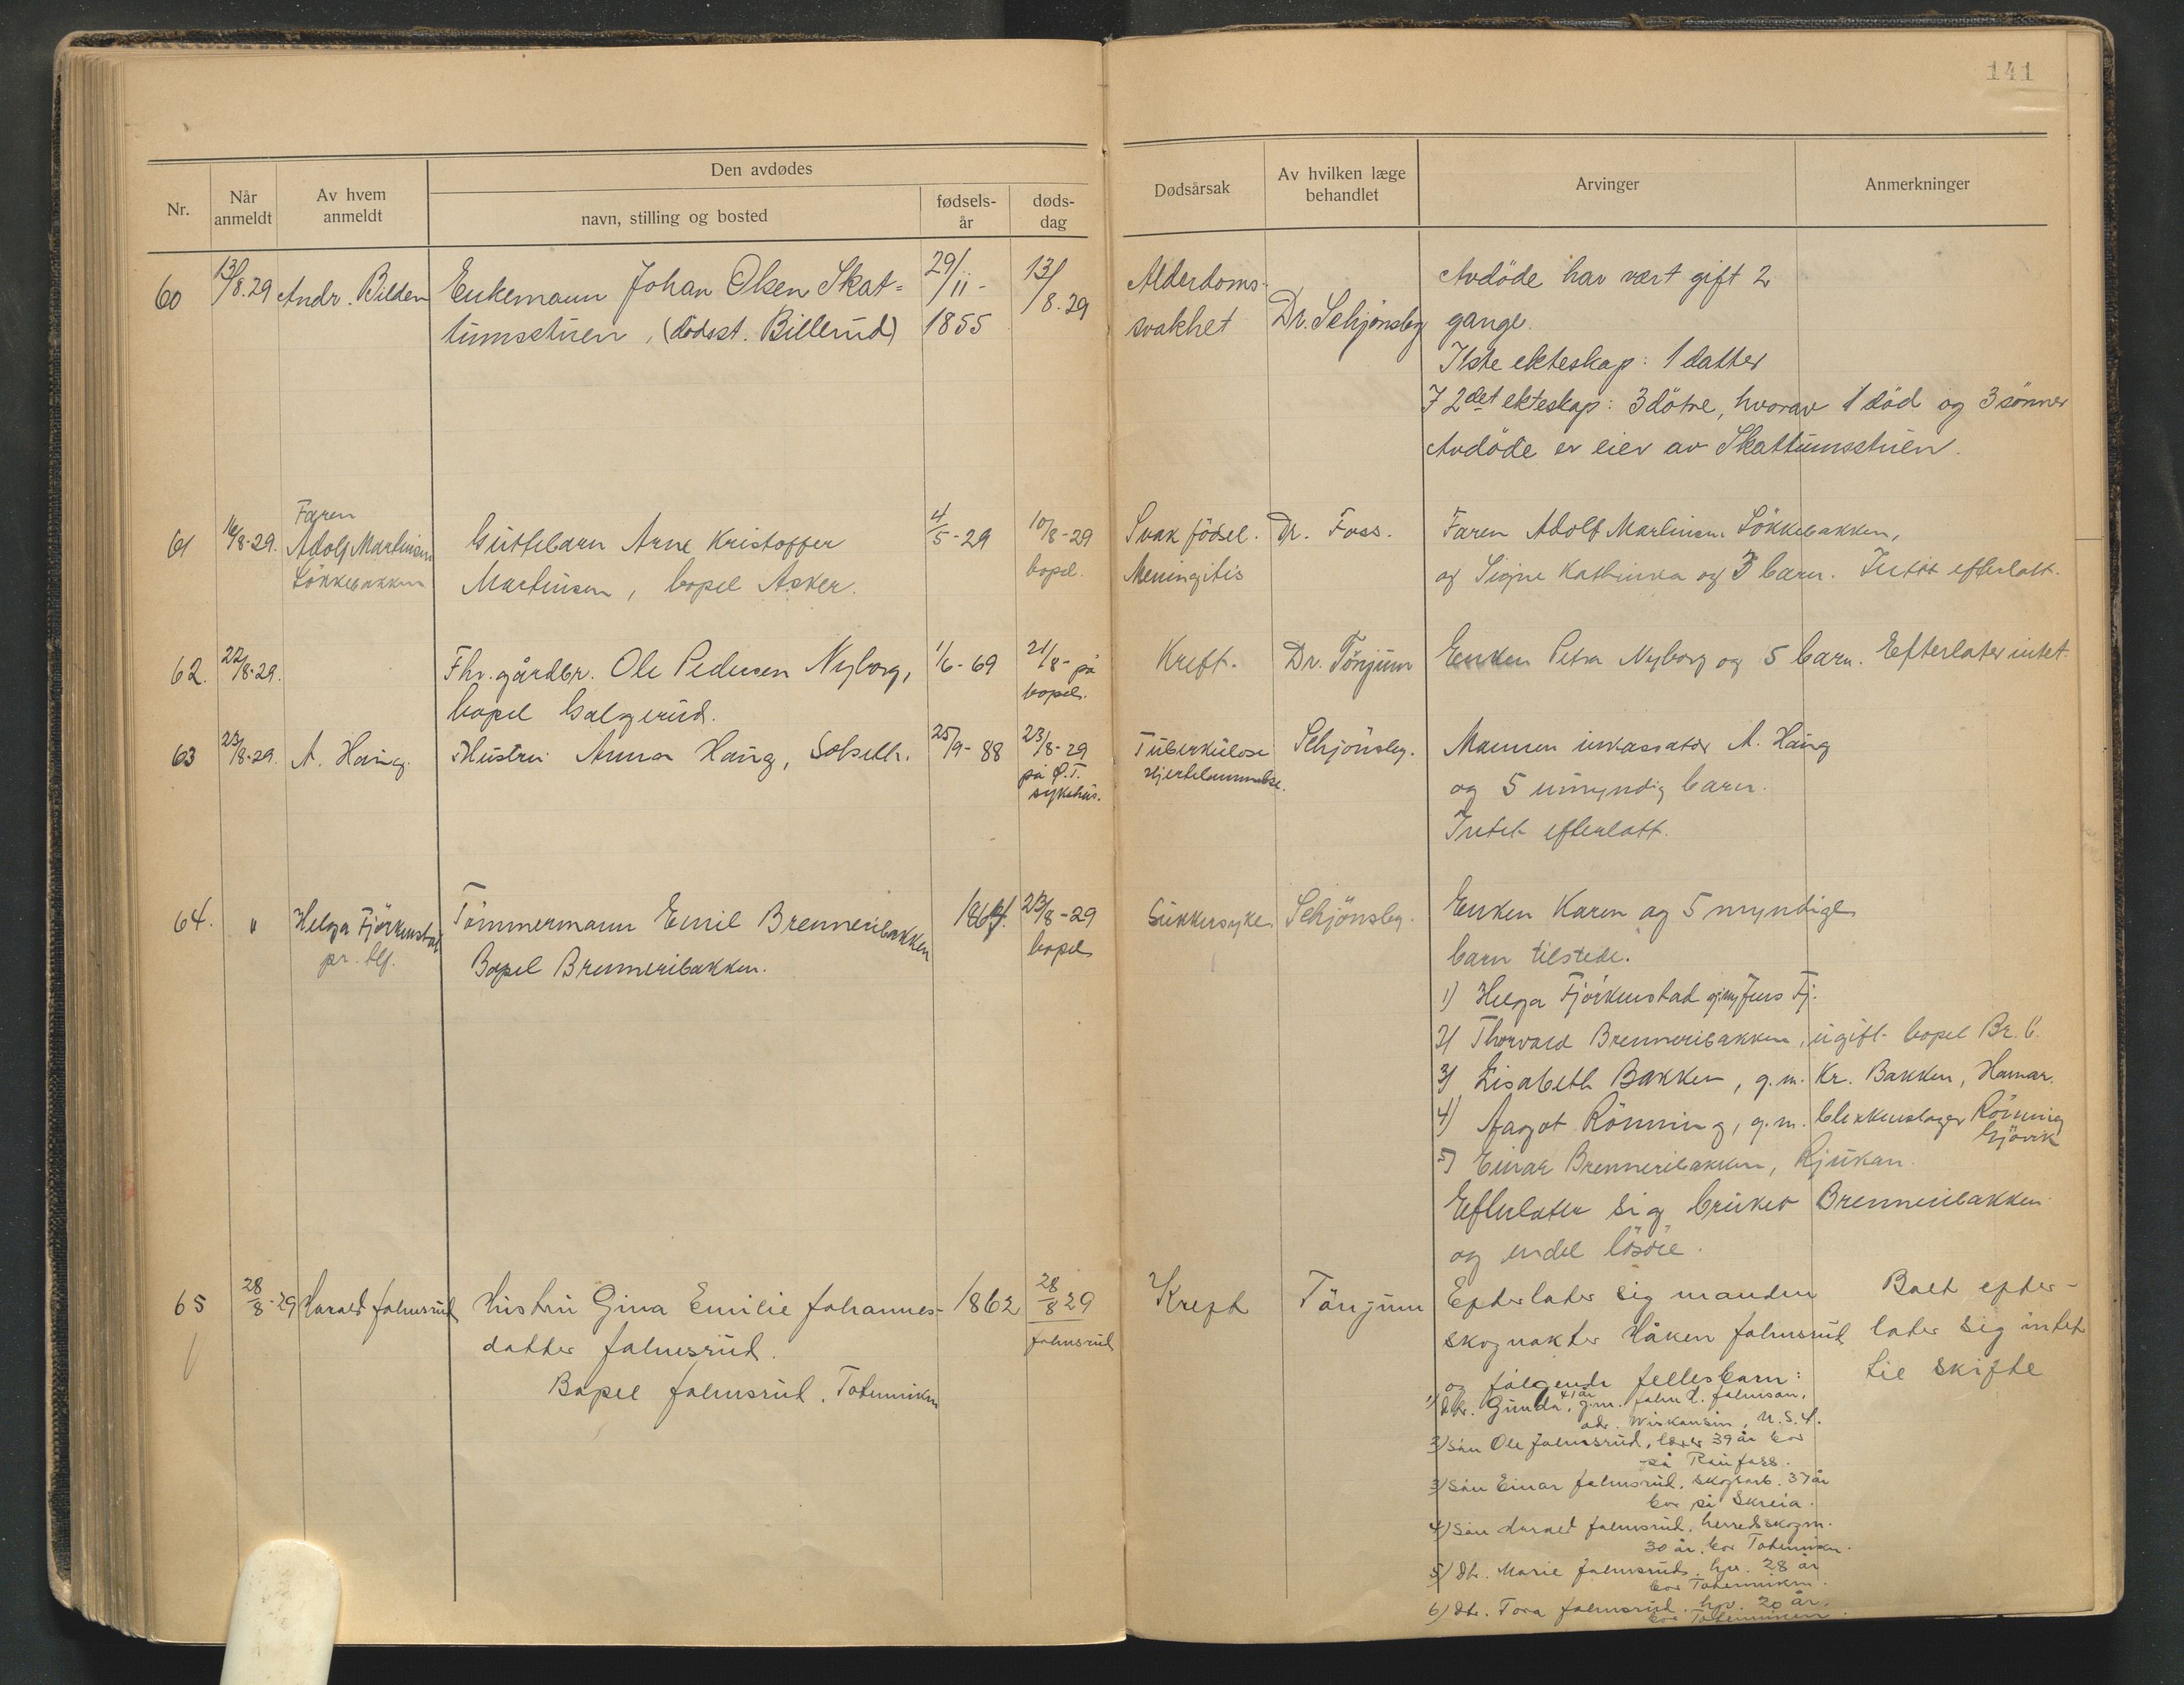 141
Nr.
Når anmeldt
Av hvem anmeldt
Den avdødes
navn, stilling og bosted
fødsels-år
døds-dag
Dødsårsak
Av hvilken læge behandlet
Arvinger
Anmerkninger
60
13/8.29
Andr. Bilden
Enkemann Johan Olsen Skat=
tumsstuen, (dødsst. Billerud)
29/11-
1855
13/8.29
Alderdoms-
svakhet
Dr. Schjønsby
Avdöde har vært gift 2
gange.
I 1ste ekteskap: 1 datter
I 2det ekteskap: 3 dötre, hvorav 1 död og 3 sönner
Avdöde er eier av Skattumsstuen.
61
16/8-29.
Faren
Adolf Martinsen
Lökkebakken
Guttebarn Arne Kristoffer
Martinsen, bopel Asker.
4/5-29
10/8-29
bopel.
Svak födsel.
Meningitis
Dr. Foss.
Faren Adolf Martinsen Lökkebakken,
og Signe Kathinka og 3 barn. Intet efterlatt.
62.
22/8-29.
Fhv. gårdbr. Ole Pedersen Nyborg,
bopel Galgerud.
1/6-69
21/8- på
bopel.
Kreft.
Dr. Tönjum
Enken Petra Nyborg og 5 barn. Efterlater intet.
63
23/8-29.
A. Haug.
Hustru Anna Haug, Solseth.
25/9-88
23/8-29
på Ø.T.
sykehus.
Tuberkulose
Hjertelammelse.
Schjönsby.
Mannen inkassator A. Haug
og 5 umyndig barn.
Intet efterlatt.
64.
"
Helga Fjörkenstad
pr. tlf.
Tömmermann Emil Brenneribakken
Bopel Brenneribakken.
1864.
23/8-29
bopel
Sukkersyke.
Schjönsby.
Enken Karen og 5 myndige
barn tilstede.
1) Helga Fjörkenstad g.m. Jens Fj.
2) Thorvald Brenneribakken, ugift bopel Br.b.
3) Lisabeth Bakken, g.m. Kr. Bakken, Hamar.
4) Aagot Rönning, g.m. blikkenslager Rönning
Gjövik
5) Einar Brenneribakken, Rjukan.
Efterlater sig bruket Brenneribakken
og endel lösöre.
65
28/8-29
Harald Jalmsrud
Hustru Gina Emilie Johannes-
datter Jalmsrud.
Bopel Jalmsrud. Totenviken
1862
28/8 29
Jalmsrud
Kreft
Tönjum
Efterlater sig manden
skogvakter Håken Jalmsrud
og fölgende fellesbarn:
1) dtr. Gunda, 41 år g.m. John H. Johnson,
adr. Wiskonsin, U.S.A.
2) sön Ole Jalmsrud, lærer 39 år bor
på Raufoss.
3) sön Einar Jalmsrud, skogsarb. 37 år
bor på Skreia.
4) sön Harald Jalmsrud, herredskogm.
30 år. bor Totenviken.
5) Dtr. Marie Jalmsrud. hjv. 28 år
bor Totenviken.
6) dtr. Tora Jalmsrud. hjv. 20 år.
bor Totenviken.
Boet efter-
later sig intet
til skifte